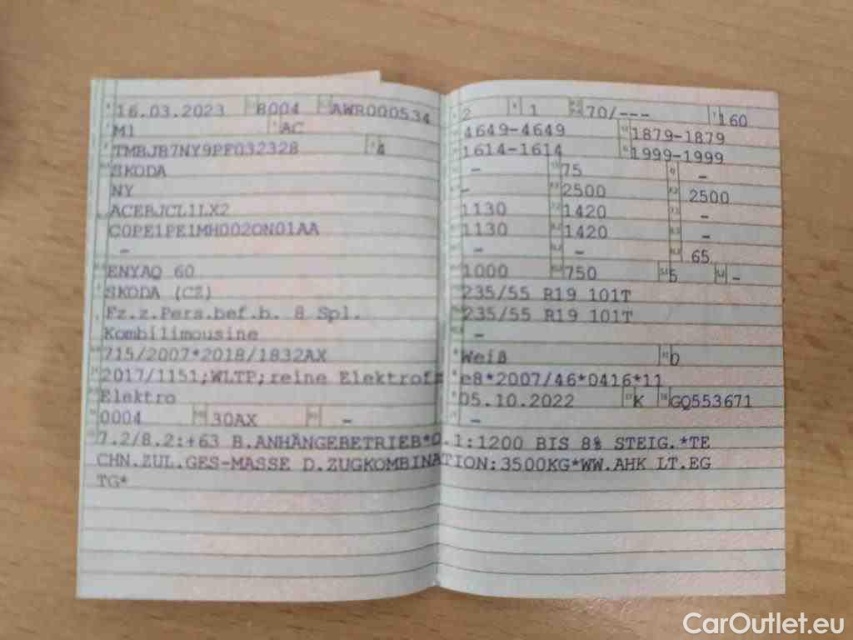 16.03.2023 8004 AWR000534
M1 AC
TMBJB7NY9PF032328 4
SKODA
NY
ACEBJCL1LX2
C0PE1PE1MH002ON01AA
-
ENYAQ 60
SKODA (CZ)
Fz.z.Pers.bef.b. 8 Spl.
Kombilimousine
715/2007*2018/1832AX
2017/1151;WLTP;reine Elektrofz
Elektro
0004 30AX -
2 1 70/--- 160
4649-4649 1879-1879
1614-1614 1999-1999
- 75 -
- 2500 2500
1130 1420 -
1130 1420 -
- - 65
1000 750 5 -
235/55 R19 101T
235/55 R19 101T
-
Weiß 0
e8*2007/46*0416*11
05.10.2022 K GQ553671
-
7.2/8.2:+63 B.ANHÄNGEBETRIEB*O.1:1200 BIS 8% STEIG.*TE
CHN.ZUL.GES-MASSE D.ZUGKOMBINATION:3500KG*WW.AHK LT.EG
TG*
CarOutlet.eu